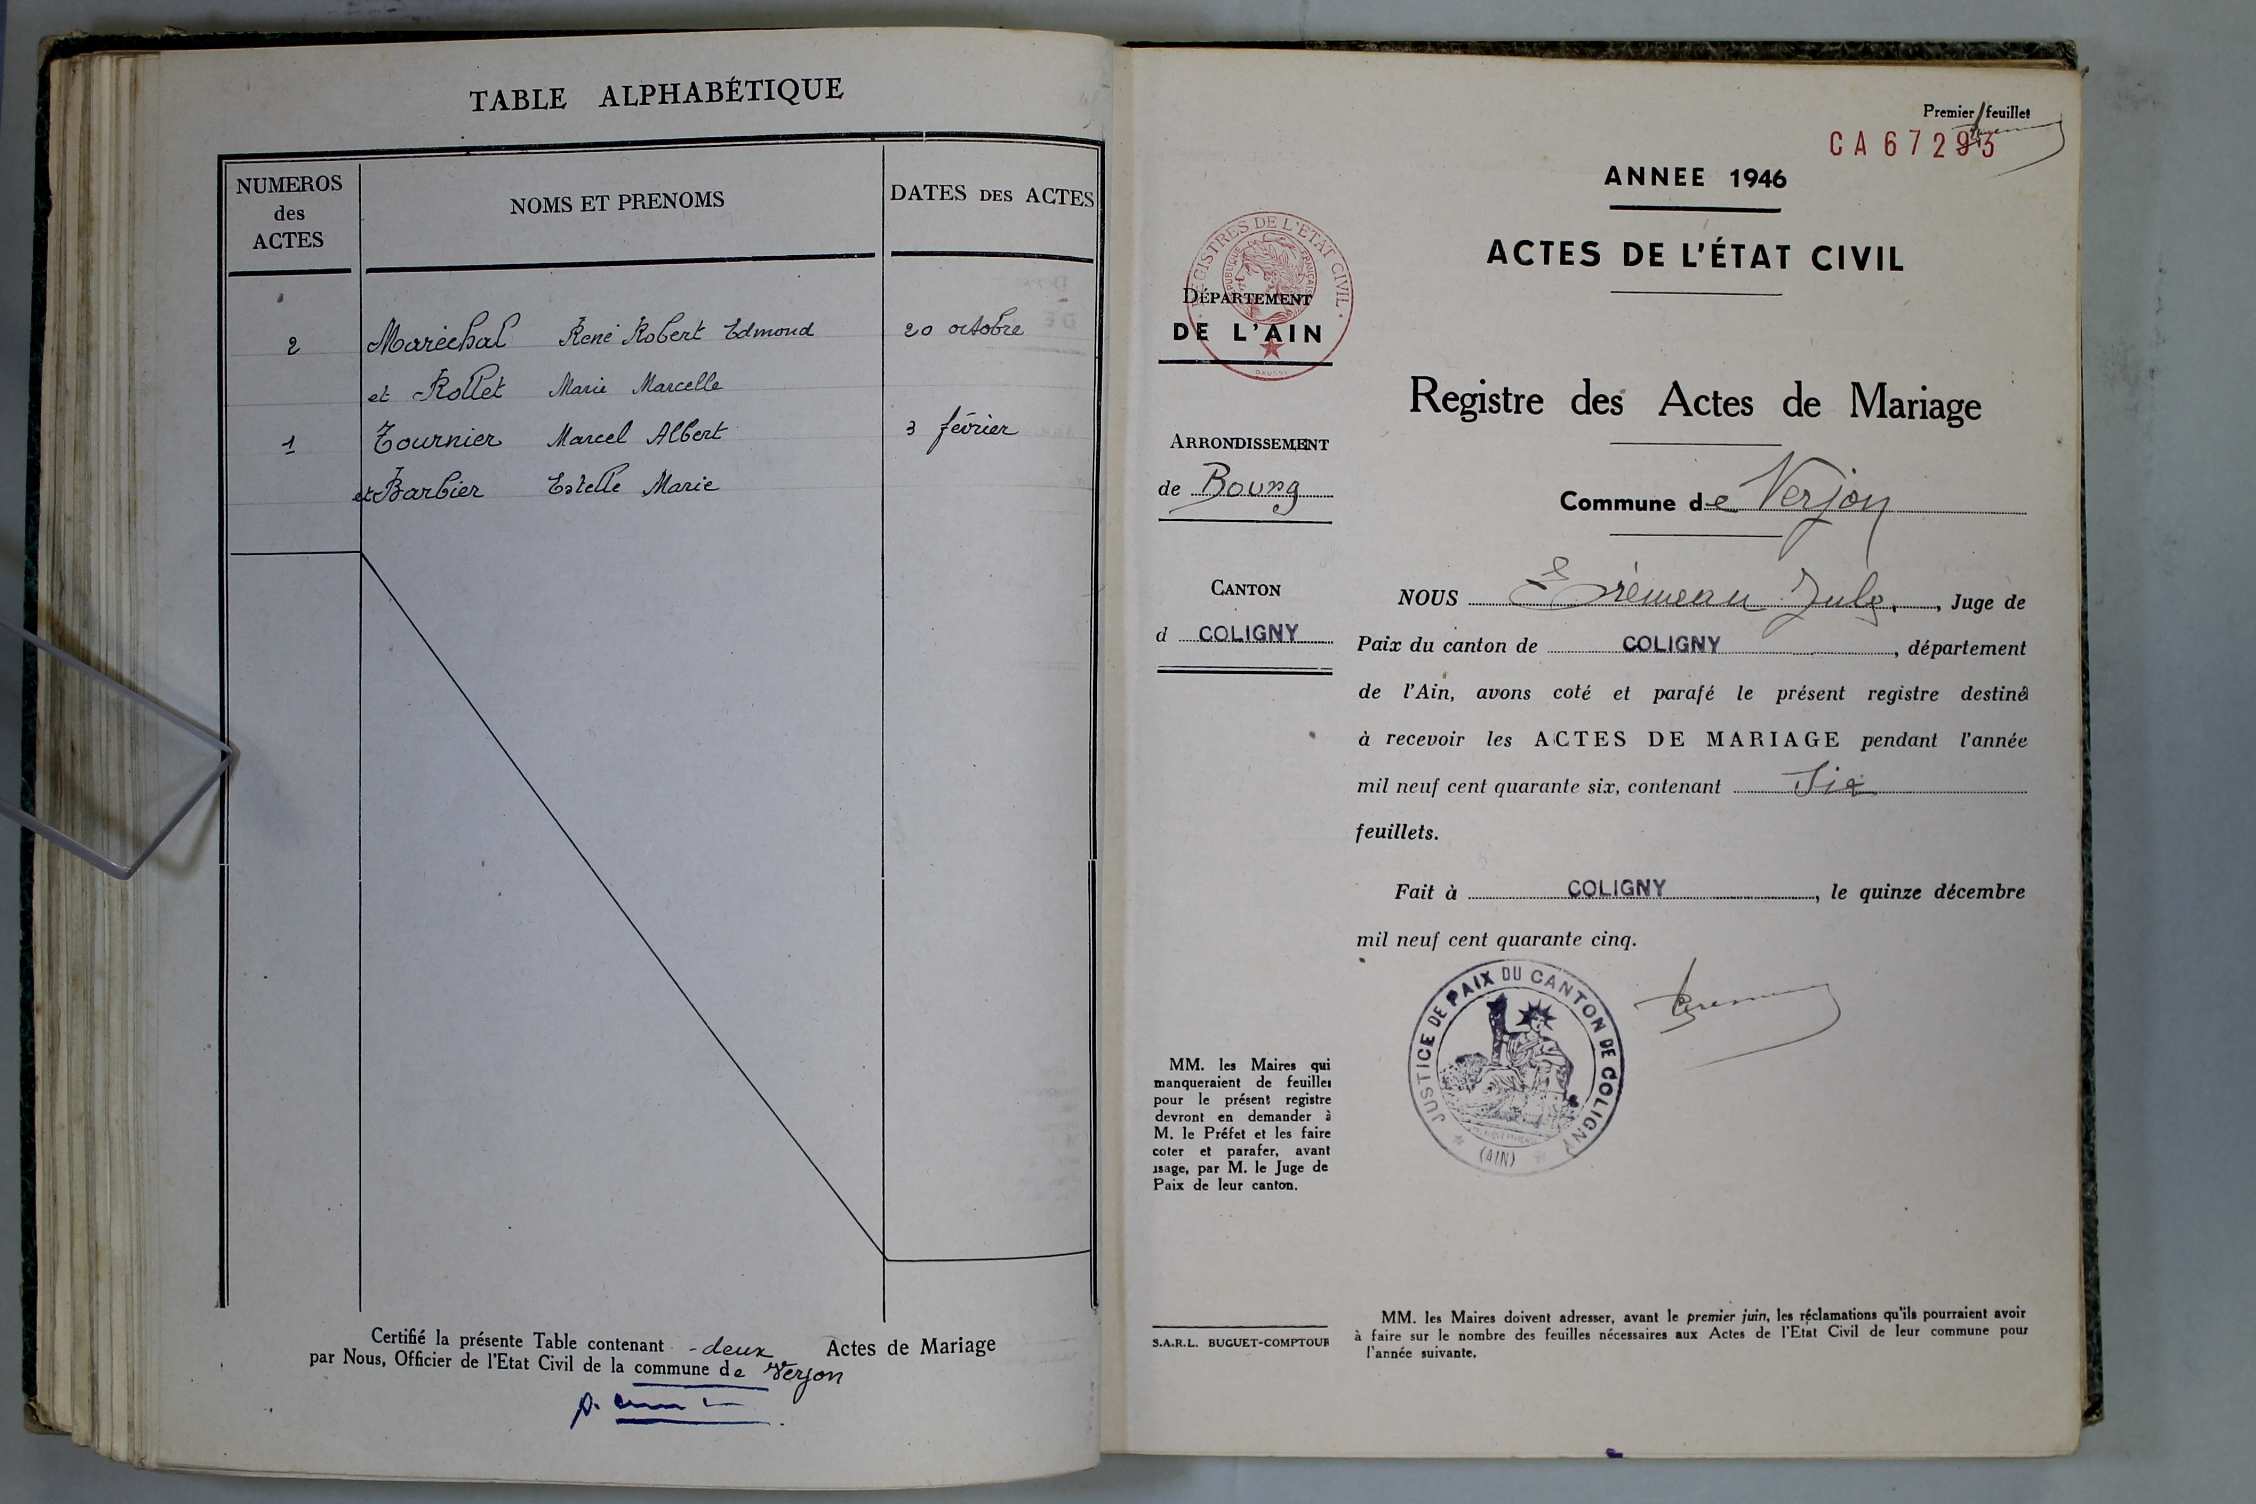 TABLE ALPHABÉTIQUE
NUMEROS
des
ACTES
NOMS ET PRENOMS
DATES DES ACTES
2 Maréchal René Robert Edmond 20 octobre
et Rollet Marie Marcelle
1 Tournier Marcel Albert 3 février
et Barbier Estelle Marie
Certifié la présente Table contenant - deux Actes de Mariage
par Nous, Officier de l'Etat Civil de la commune de Verjon
Premier feuillet
CA67293
ANNEE 1946
ACTES DE L'ÉTAT CIVIL
REGISTRES DE L'ETAT CIVIL
RÉPUBLIQUE FRANÇAISE
DÉPARTEMENT
DE L'AIN
Registre des Actes de Mariage
ARRONDISSEMENT
de Bourg
Commune de Verjon
CANTON
d COLIGNY
NOUS Jules, Juge de
Paix du canton de COLIGNY, département
de l'Ain, avons coté et parafé le présent registre destiné
à recevoir les ACTES DE MARIAGE pendant l'année
mil neuf cent quarante six, contenant Six
feuillets.
Fait à COLIGNY, le quinze décembre
mil neuf cent quarante cinq.
JUSTICE DE PAIX DU CANTON DE COLIGNY
(AIN)
MM. les Maires qui
manqueraient de feuilles
pour le présent registre
devront en demander à
M. le Préfet et les faire
coter et parafer, avant
usage, par M. le Juge de
Paix de leur canton.
S.A.R.L. BUGUET-COMPTOUR
MM. les Maires doivent adresser, avant le premier juin, les réclamations qu'ils pourraient avoir
à faire sur le nombre des feuilles nécessaires aux Actes de l'Etat Civil de leur commune pour
l'année suivante.